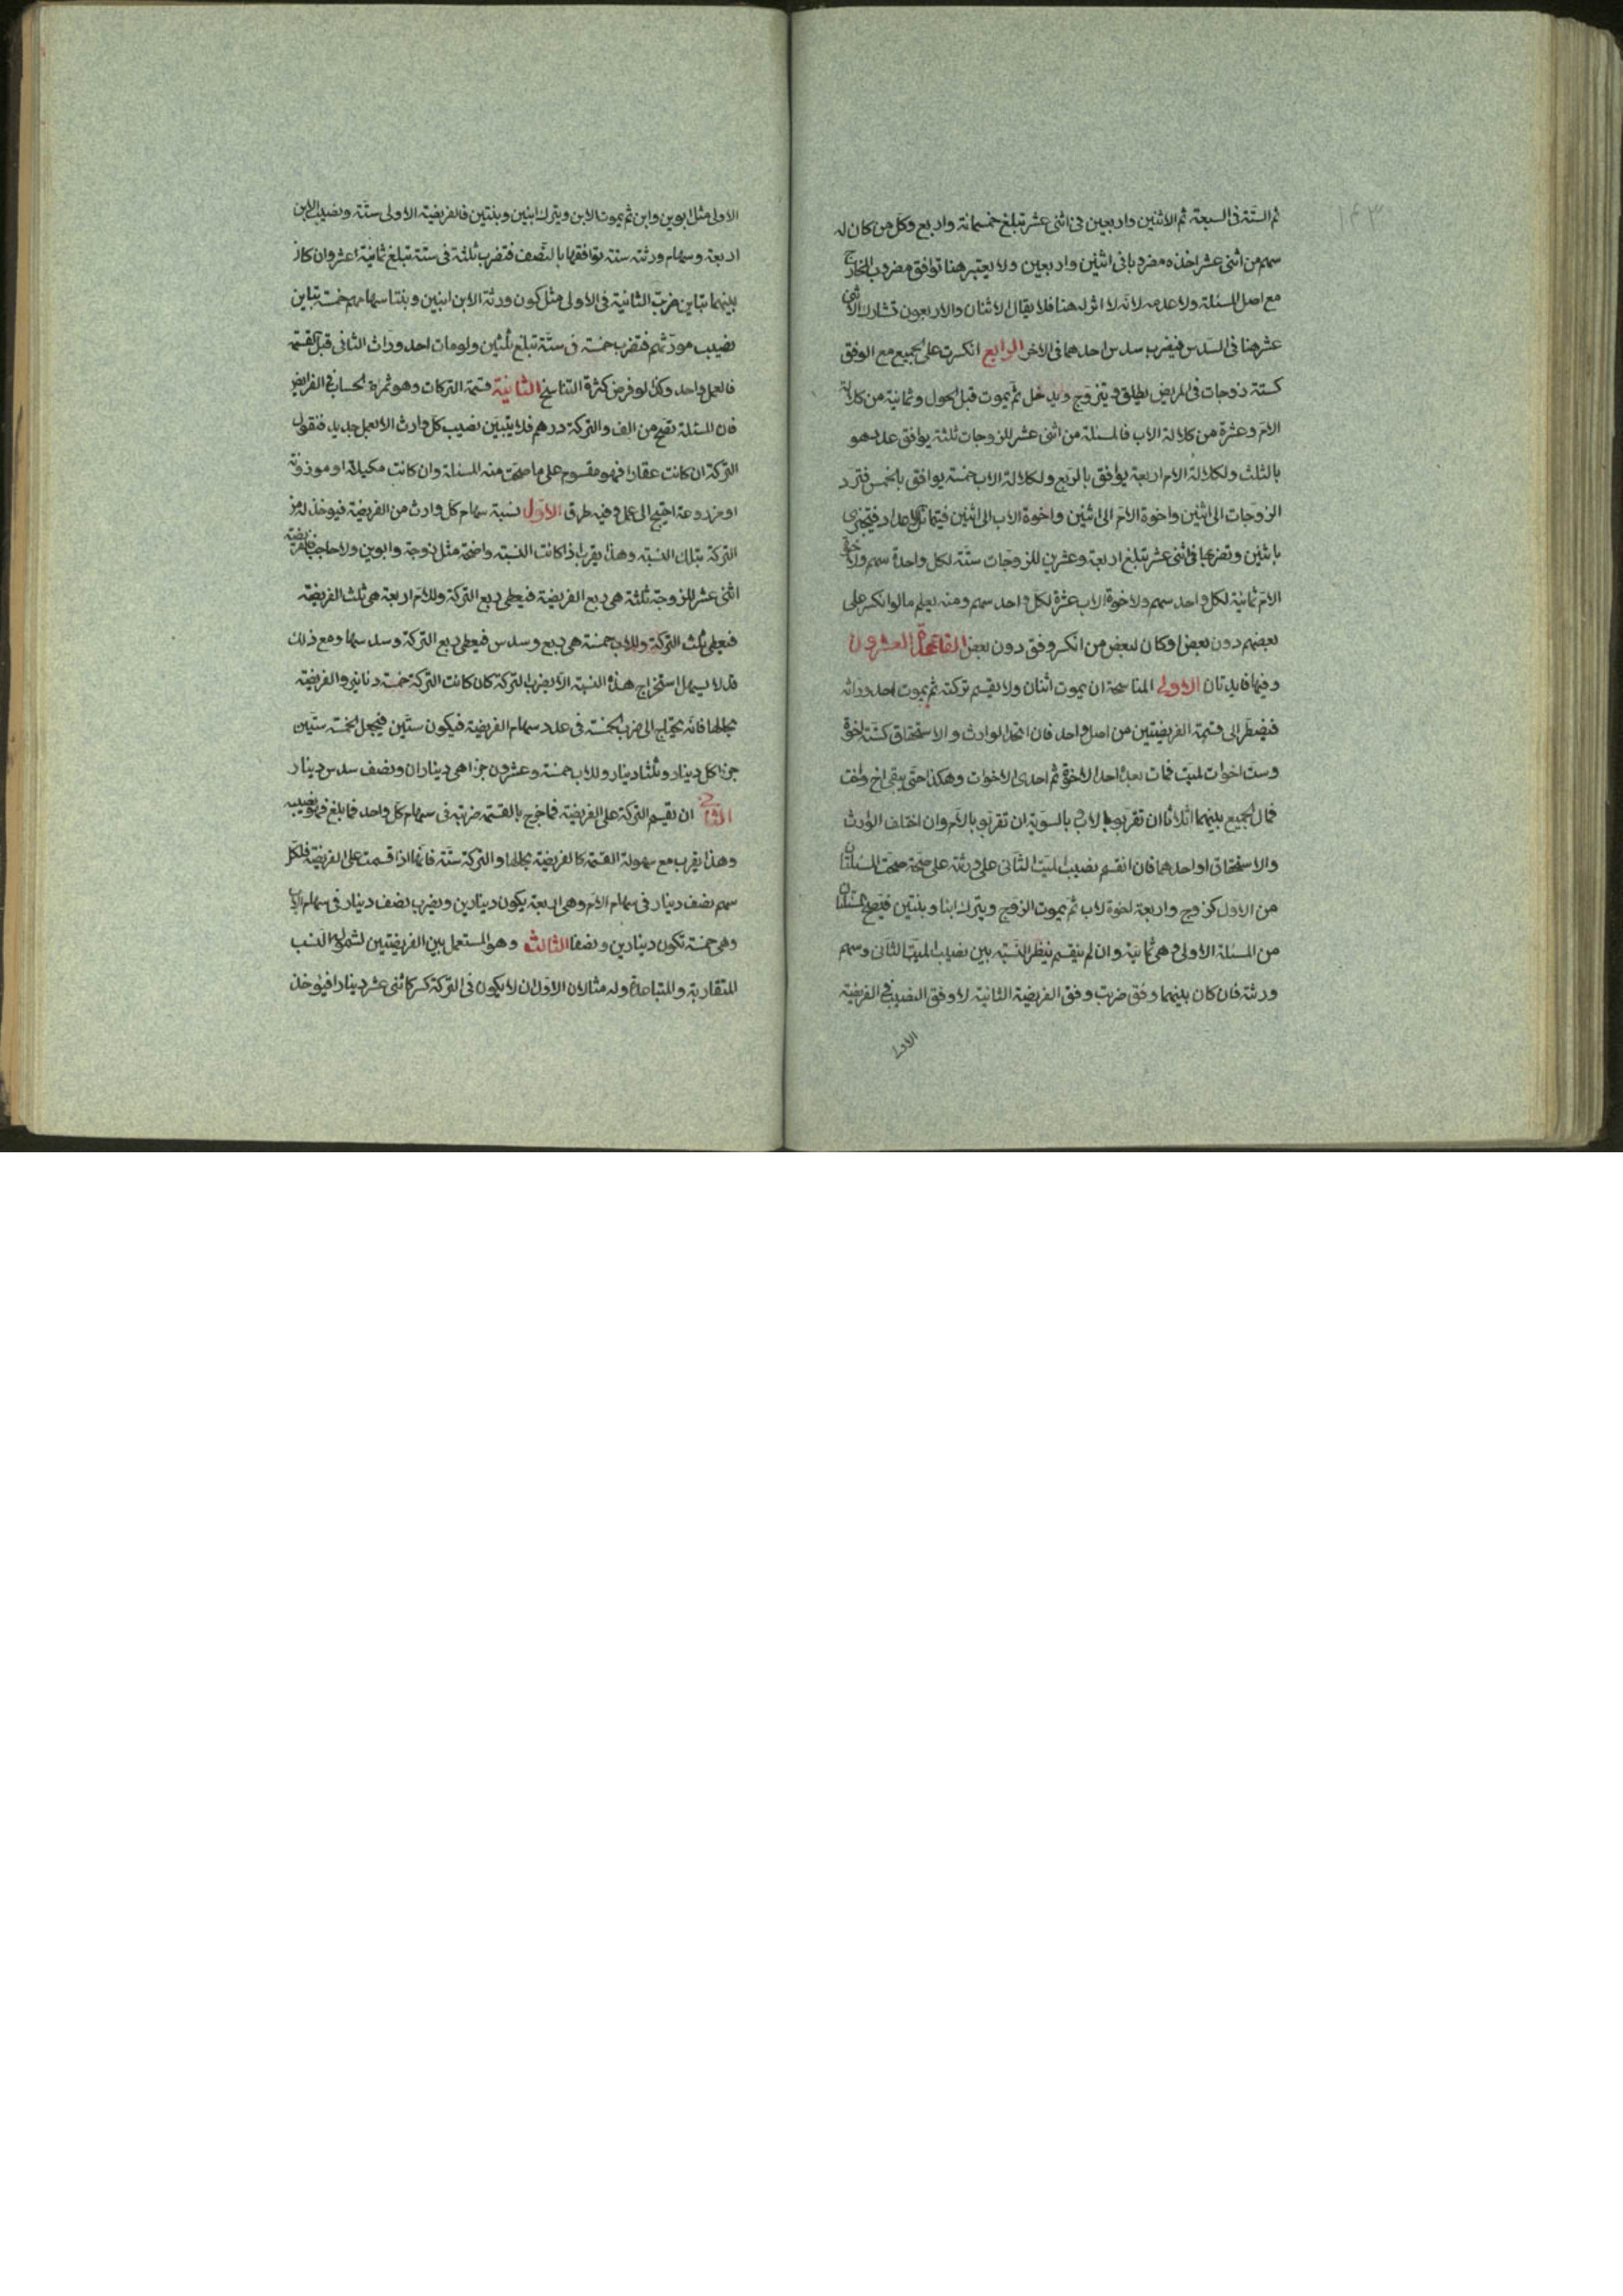 ١٤٣
ثم الستة فى السبعة ثم الاثنين واربعين فى اثنى عشر تبلغ خمسمائة واربع وكل من كان له
سهم من اثنى عشر اخذه مضروبا فى اثنين واربعين ولا يعتبر هنا توافق مضروب المخارج
مع اصل المسئلة ولا عدمه لانه لا اثر له هنا فلا يقال الاثنان والاربعون تشارك الاثنى
عشر هنا فى السدس فيضرب سدس احدهما فى الاخر الرابع انكسرت على الجميع مع الوفق
كستة زوجات فى المريض يطلق ويتزوج ويدخل ثم يموت قبل الحول وثمانية من كلالة
الام وعشرة من كلالة الاب فالمسئلة من اثنى عشر للزوجات ثلثة يوافق عددهو
بالثلث ولكلالة الام اربعة يوافق بالربع ولكلالة الاب خمسة يوافق بالخمس فترد
الزوجات الى اثنين واخوة الام الى اثنين واخوة الاب الى اثنين فيتماثل الاعداد فيجتزى
باثنين وتضربها فى اثنى عشر تبلغ اربعة وعشرين للزوجات ستة لكل واحدة سهم ولاخوة
الام ثمانية لكل واحد سهم ولاخوة الاب عشرة لكل واحد سهم ومنه يعلم ما لو انكسر على
بعضهم دون بعض او كان لبعض من انكسر وفق دون بعض القاعدة العشرون
وفيها فايدتان الاولى المناسخة ان يموت اثنان ولا يقسم تركته ثم يموت احد وراثه
فيضطر الى قسمة الفريضتين من اصل واحد فان اتحد الوارث والاستحقاق كستة اخوة
وست اخوات لميت فمات بعده احد الاخوة ثم احدى الاخوات وهكذا حتى يبقى اخ واخت
فمال الجميع بينهما اثلاثا ان تقربوا بالاب وبالسوية ان تقربوا بالام وان اختلف الوارث
والاستحقاق او احدهما فان انقسم نصيب الميت الثانى على ورثته على صحة صحت المسئلتان
من الاول كزوج واربعة اخوة لاب ثم يموت الزوج ويترك ابنا وبنتين فتصح المسئلتان
من المسئلة الاولى وهى ثمانية وان لم ينقسم ينظر النسبة بين نصيب الميت الثانى وسهم
ورثته فان كان بينهما وفق ضربت وفق الفريضة الثانية لا وفق النصيب فى الفريضة
الاولى
الاولى مثل ابوين وابن ثم يموت الابن ويترك ابنين وبنتين فالفريضة الاولى ستة ونصيب الابن
اربعة وسهام ورثته ستة توافقها بالنصف فتضرب ثلثة فى ستة تبلغ ثمانية عشر وان كان
بينهما تباين ضربت الثانية فى الاولى مثل كون ورثة الابن ابنين وبنتا سهامهم خمسة تباين
نصيب مورثهم فتضرب خمسة فى ستة تبلغ ثلثين ولو مات احد وراث الثانى قبل القسمة
فالعمل واحد وكذا لو فرض كثرة التناسخ الثانية قسمة التركات وهو ثمرة الحساب فى الفرايض
فان المسئلة تصح من الف والتركة درهم فلا يتبين نصيب كل وارث الا بعمل جديد فنقول
التركة ان كانت عقارا فهو مقسوم على ما صحت منه المسئلة وان كانت مكيلة او موزونة
او مزروعة احتيج الى عمل وفيه طرق الاول نسبة سهام كل وارث من الفريضة فيوخذ له من
التركة بتلك النسبة وهذا يقرب اذا كانت النسبة واضحة مثل زوجة وابوين ولا حاجب فالفريضة
اثنى عشر للزوجة ثلثة هى ربع الفريضة فيعطى ربع التركة وللام اربعة هى ثلث الفريضة
فيعطى ثلث التركة وللاب خمسة هى ربع وسدس فيعطى ربع التركة وسدسها ومع ذلك
قد لا يسهل استخراج هذه النسبة الا بضرب التركة كان كانت التركة خمسة دنانير والفريضة
بحالها فانه يحتاج الى ضرب الخمسة فى عدد سهام الفريضة فيكون ستين فيجعل الخمسة ستين
جزءا كل دينار وثلثا دينار وللاب خمسة وعشرون جزءا هى ديناران ونصف سدس دينار
الثانى ان تقسم التركة على الفريضة فما خرج بالقسمة ضربته فى سهام كل واحد فما بلغ فهو نصيبه
وهذا يقرب مع سهولة القسمة كالفريضة بحالها والتركة ستة فانها اذا قسمت على الفريضة فلكل
سهم نصف دينار فى سهام الام وهى اربعة يكون دينارين ويضرب نصف دينار فى سهام الاب
وهى خمسة تكون دينارين ونصفا الثالث وهو المستعمل بين الفريضتين لشموله النسب
المتقاربة والمتباعدة وله مثالان الاول ان لا يكون فى التركة كسر كاثنى عشر دينارا فيؤخذ